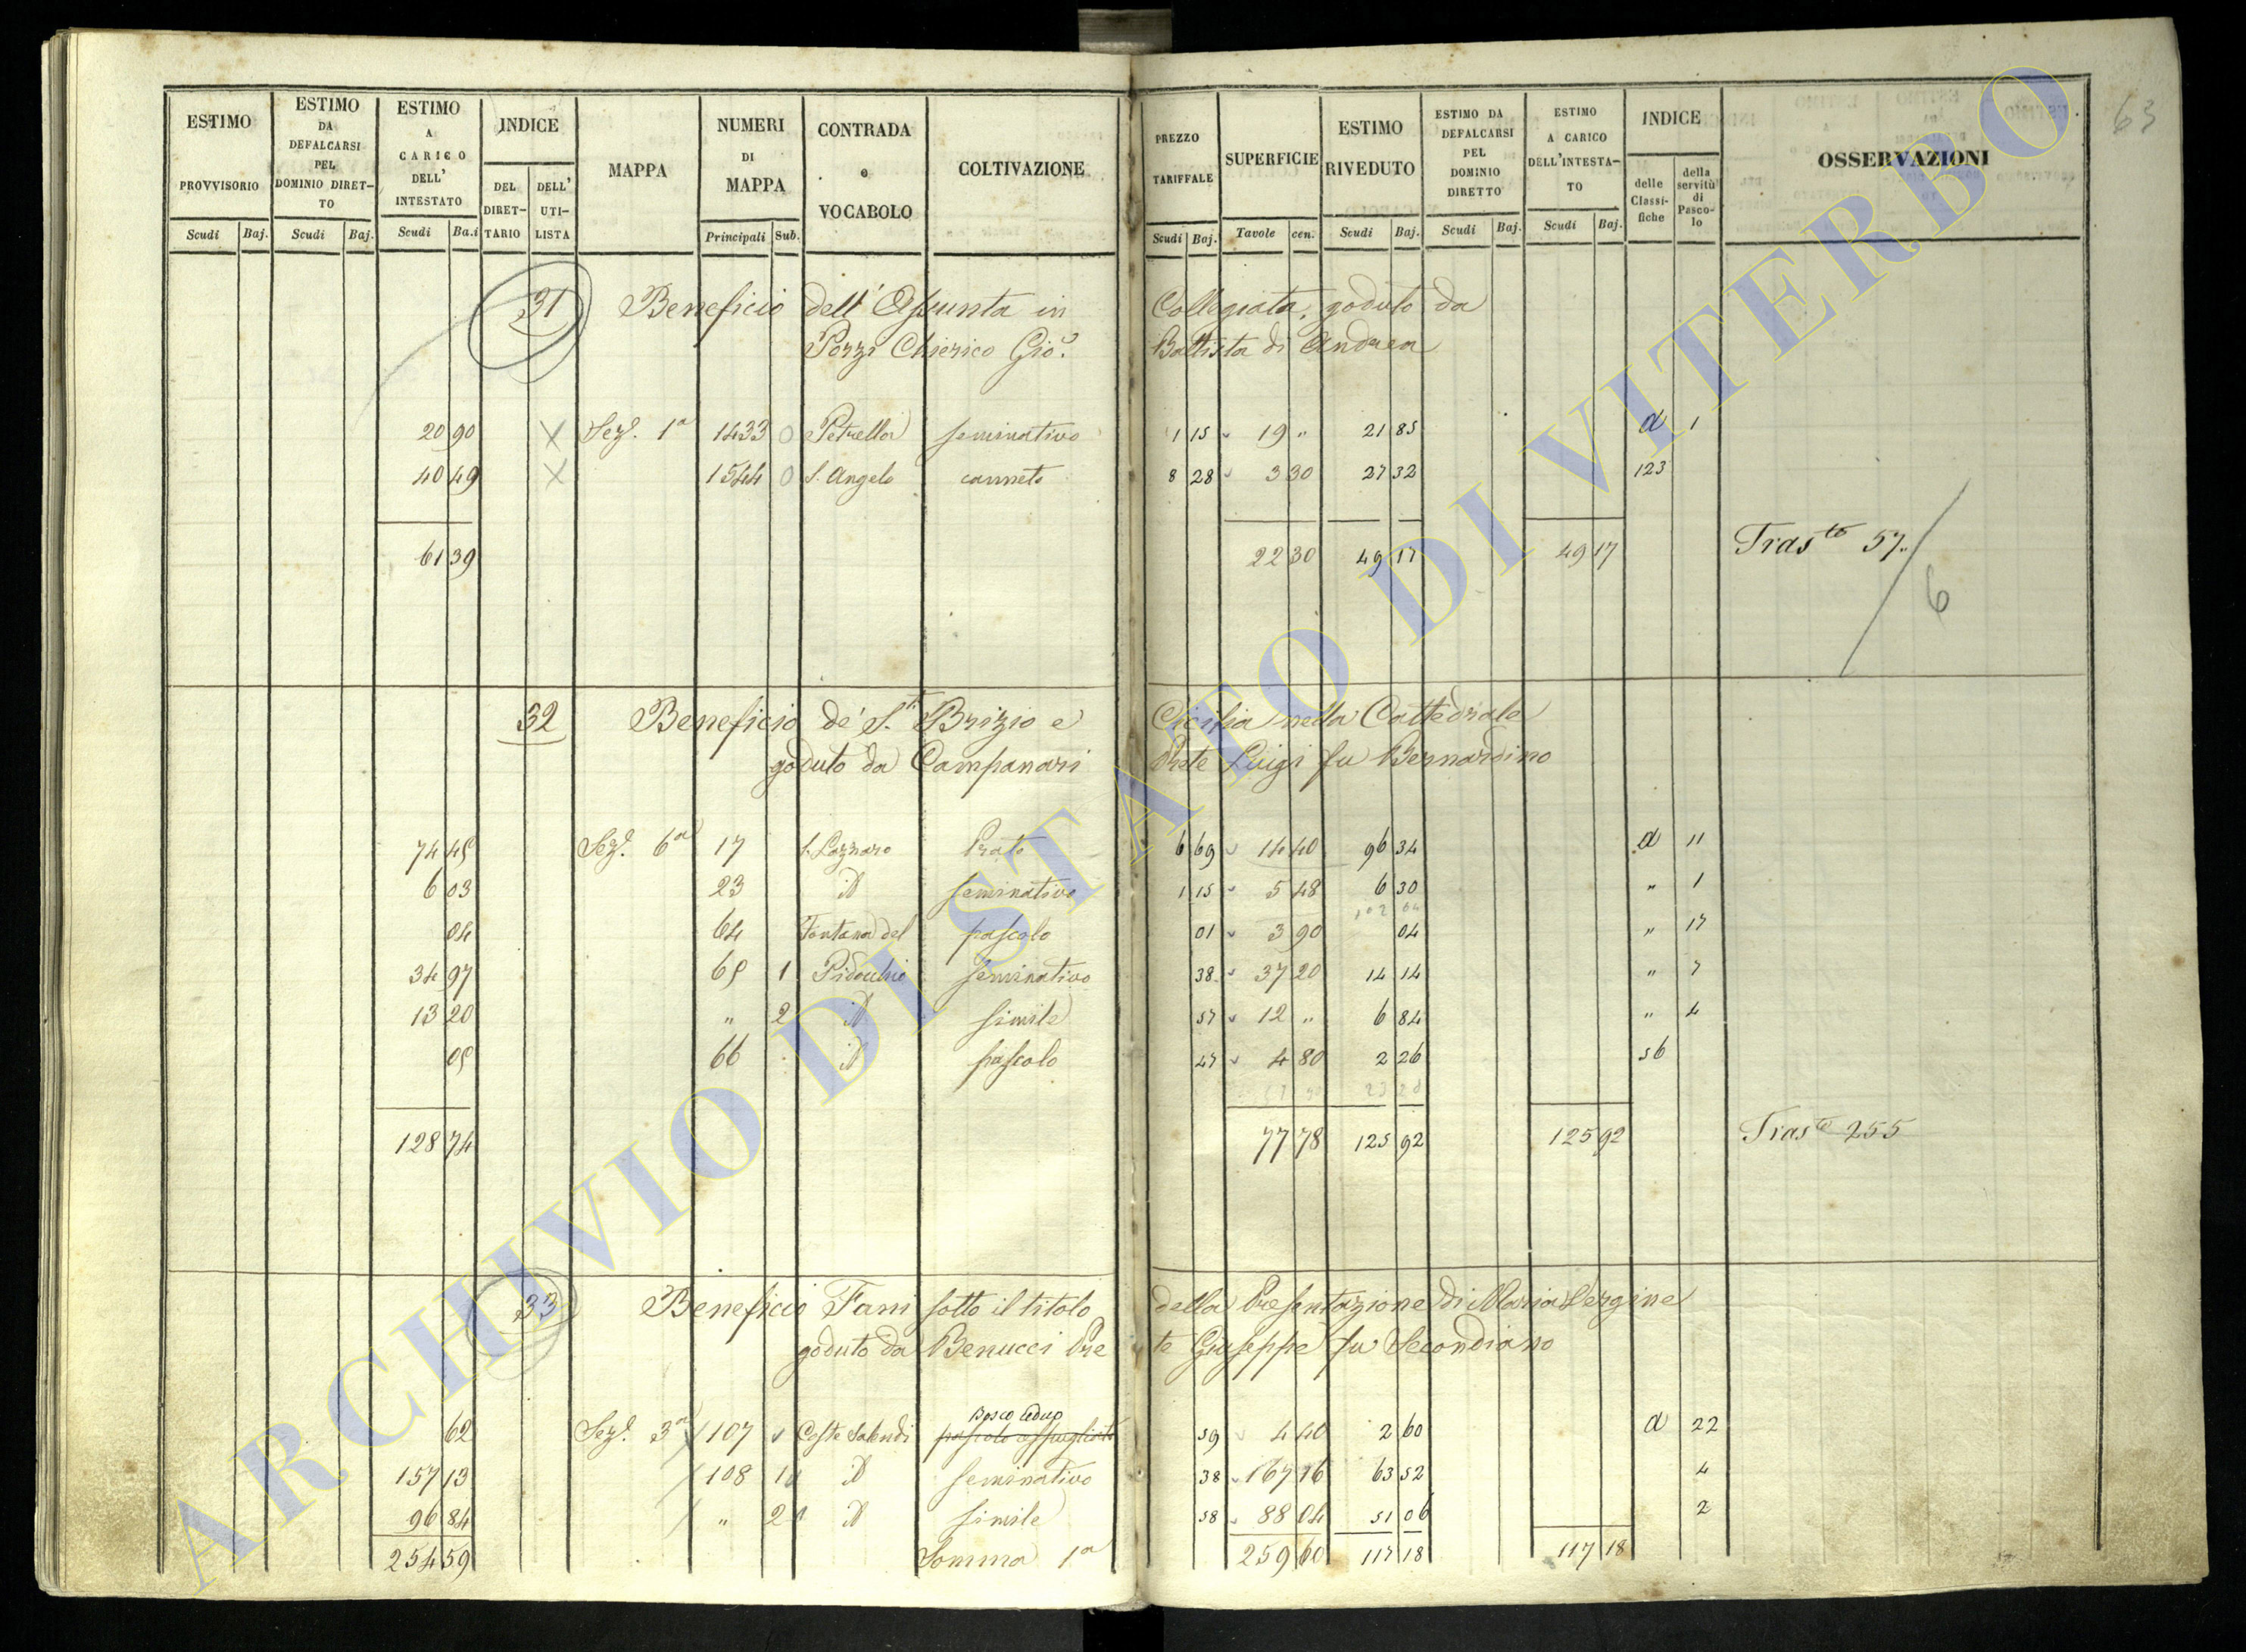 ESTIMO PROVVISORIO Scudi Baj. ESTIMO DA DEFALCARSI PEL DOMINIO DIRETTO Scudi Baj. ESTIMO A CARICO DELL' INTESTATO Scudi Ba.i INDICE DEL DIRETTARIO DELL' UTILISTA MAPPA NUMERI DI MAPPA Principali Sub. CONTRADA e VOCABOLO COLTIVAZIONE PREZZO TARIFFALE Scudi Baj. SUPERFICIE Tavole cen. ESTIMO RIVEDUTO Scudi Baj. ESTIMO DA DEFALCARSI PEL DOMINIO DIRETTO Scudi Baj. ESTIMO A CARICO DELL'INTESTATO Scudi Baj. INDICE delle Classifiche della servitù di Pascolo OSSERVAZIONI
63
31 Beneficio dell' Assunta in Collegiata, goduto da
Pozzi Chierico Gio. Battista di Andrea
20 90 X Sez. 1a 1433 0 Petrella seminativo 1 15 19 " 21 85 a 1
40 49 X 1544 0 S. Angelo canneto 8 28 3 30 27 32 123
61 39 22 30 49 17 49 17 Tras.to 57
6
32 Beneficio de' S.ti Brizio e Cicilia nella Cattedrale
goduto da Campanari Prete Luigi fu Bernardino
74 45 Sez. 6a 17 S. Lazzaro Prato 6 69 14 40 96 34 a 11
6 03 23 id seminativo 1 15 5 48 6 30 " 1
102 64
04 64 Fontana del pascolo 01 3 90 04 " 17
34 97 65 1 Pidocchio seminativo 38 37 20 14 14 " 7
13 20 " 2 id simile 57 12 " 6 84 " 4
05 66 id pascolo 47 4 80 2 26 56
23 28
128 74 77 78 125 92 125 92 Tras.to 255
33 Beneficio Fani sotto il titolo della Presentazione di Maria Vergine
goduto da Benucci Prete Giuseppe fu Secondiano
Bosco ceduo
62 Sez. 3a 107 Coste Salendi pascolo cespugliato 59 4 40 2 60 a 22
157 13 108 1 id seminativo 38 167 16 63 52 4
96 84 " 2 id simile 58 88 04 51 06 2
254 59 Somma 1a 259 60 117 18 117 18
ARCHIVIO DI STATO DI VITERBO